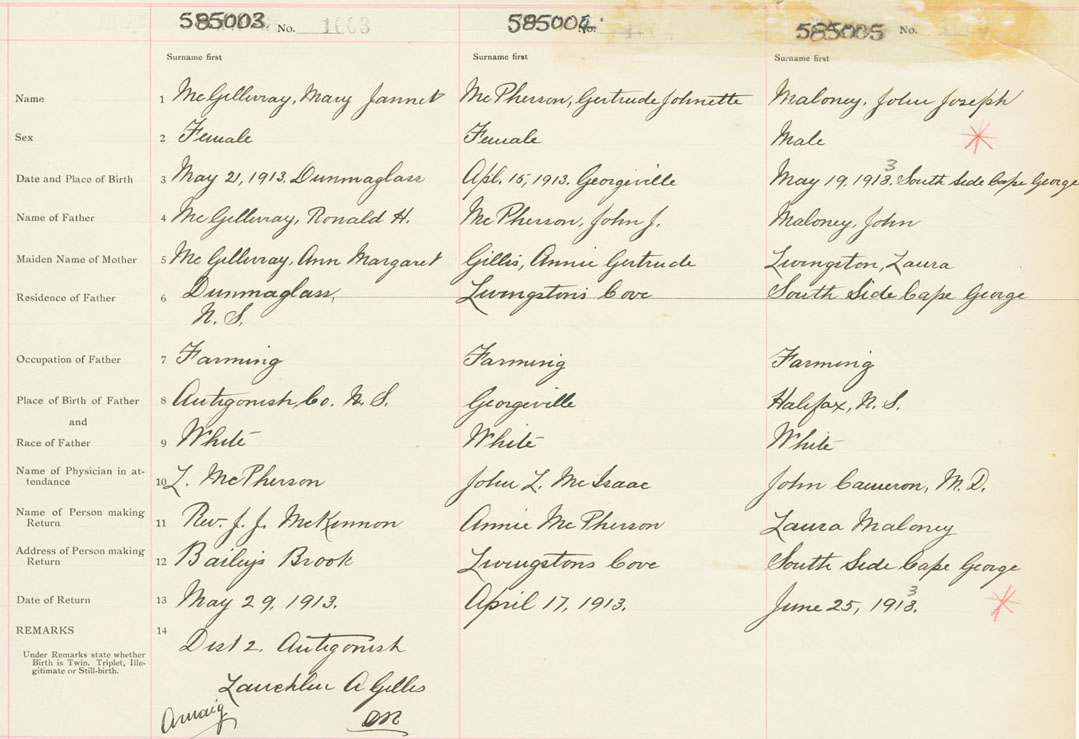 585003 No. 1003 585004 No. 585005 No.
Surname first Surname first Surname first
Name 1 McGillivray, Mary Jannet McPherson, Gertrude Johnette Maloney, John Joseph
Sex 2 Female Female Male
Date and Place of Birth 3 May 21, 1913. Dunmaglass Apl. 15, 1913. Georgeville May 19, 1913. 3 South Side Cape George
Name of Father 4 McGillivray, Ronald H. McPherson, John J. Maloney, John
Maiden Name of Mother 5 McGillivray, Ann Margaret Gillis, Annie Gertrude Livingston, Laura
Residence of Father 6 Dunmaglass, Livingstons Cove South Side Cape George
N. S.
Occupation of Father 7 Farming Farming Farming
Place of Birth of Father 8 Antigonish, Co. N. S. Georgeville Halifax, N. S.
and
Race of Father 9 White White White
Name of Physician in at-
tendance 10 L. McPherson John L. McIsaac John Cameron, M. D.
Name of Person making
Return 11 Rev. J. J. McKinnon Annie McPherson Laura Maloney
Address of Person making
Return 12 Bailys Brook Livingstons Cove South Side Cape George
Date of Return 13 May 29, 1913. April 17, 1913. June 25, 1913. 3
REMARKS 14
Under Remarks state whether
Birth is Twin, Triplet, Ille-
gitimate or Still-birth.
Dist 2. Antigonish
Lauchlin A Gillis
Arisaig DR